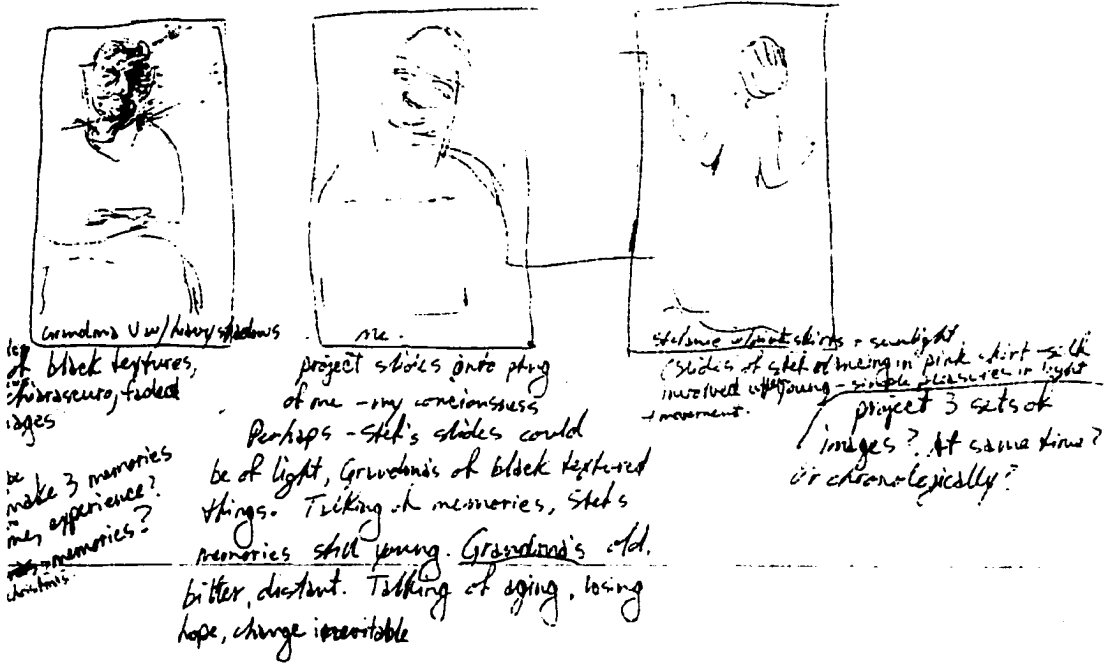 Grandma V w/ heavy shadows
of black textures,
chiaroscuro, faded
be
make 3 memories
me, experience?
memories?
christmas
me.
project slides onto ptng
of me - my conciousness
Perhaps - Stef's slides could
be of light, Grandma's of black textured
things. Talking of memories, Stef's
memories still young. Grandma's old,
bitter, distant. Talking of aging, losing
hope, change inevitable
Stefanie w/ pink skirts + sunlight
(slides of Stef dancing in pink skirt - silk
involved young - simple pleasures in light
+ movement.
project 3 sets of
images? At same time?
Or chronologically?